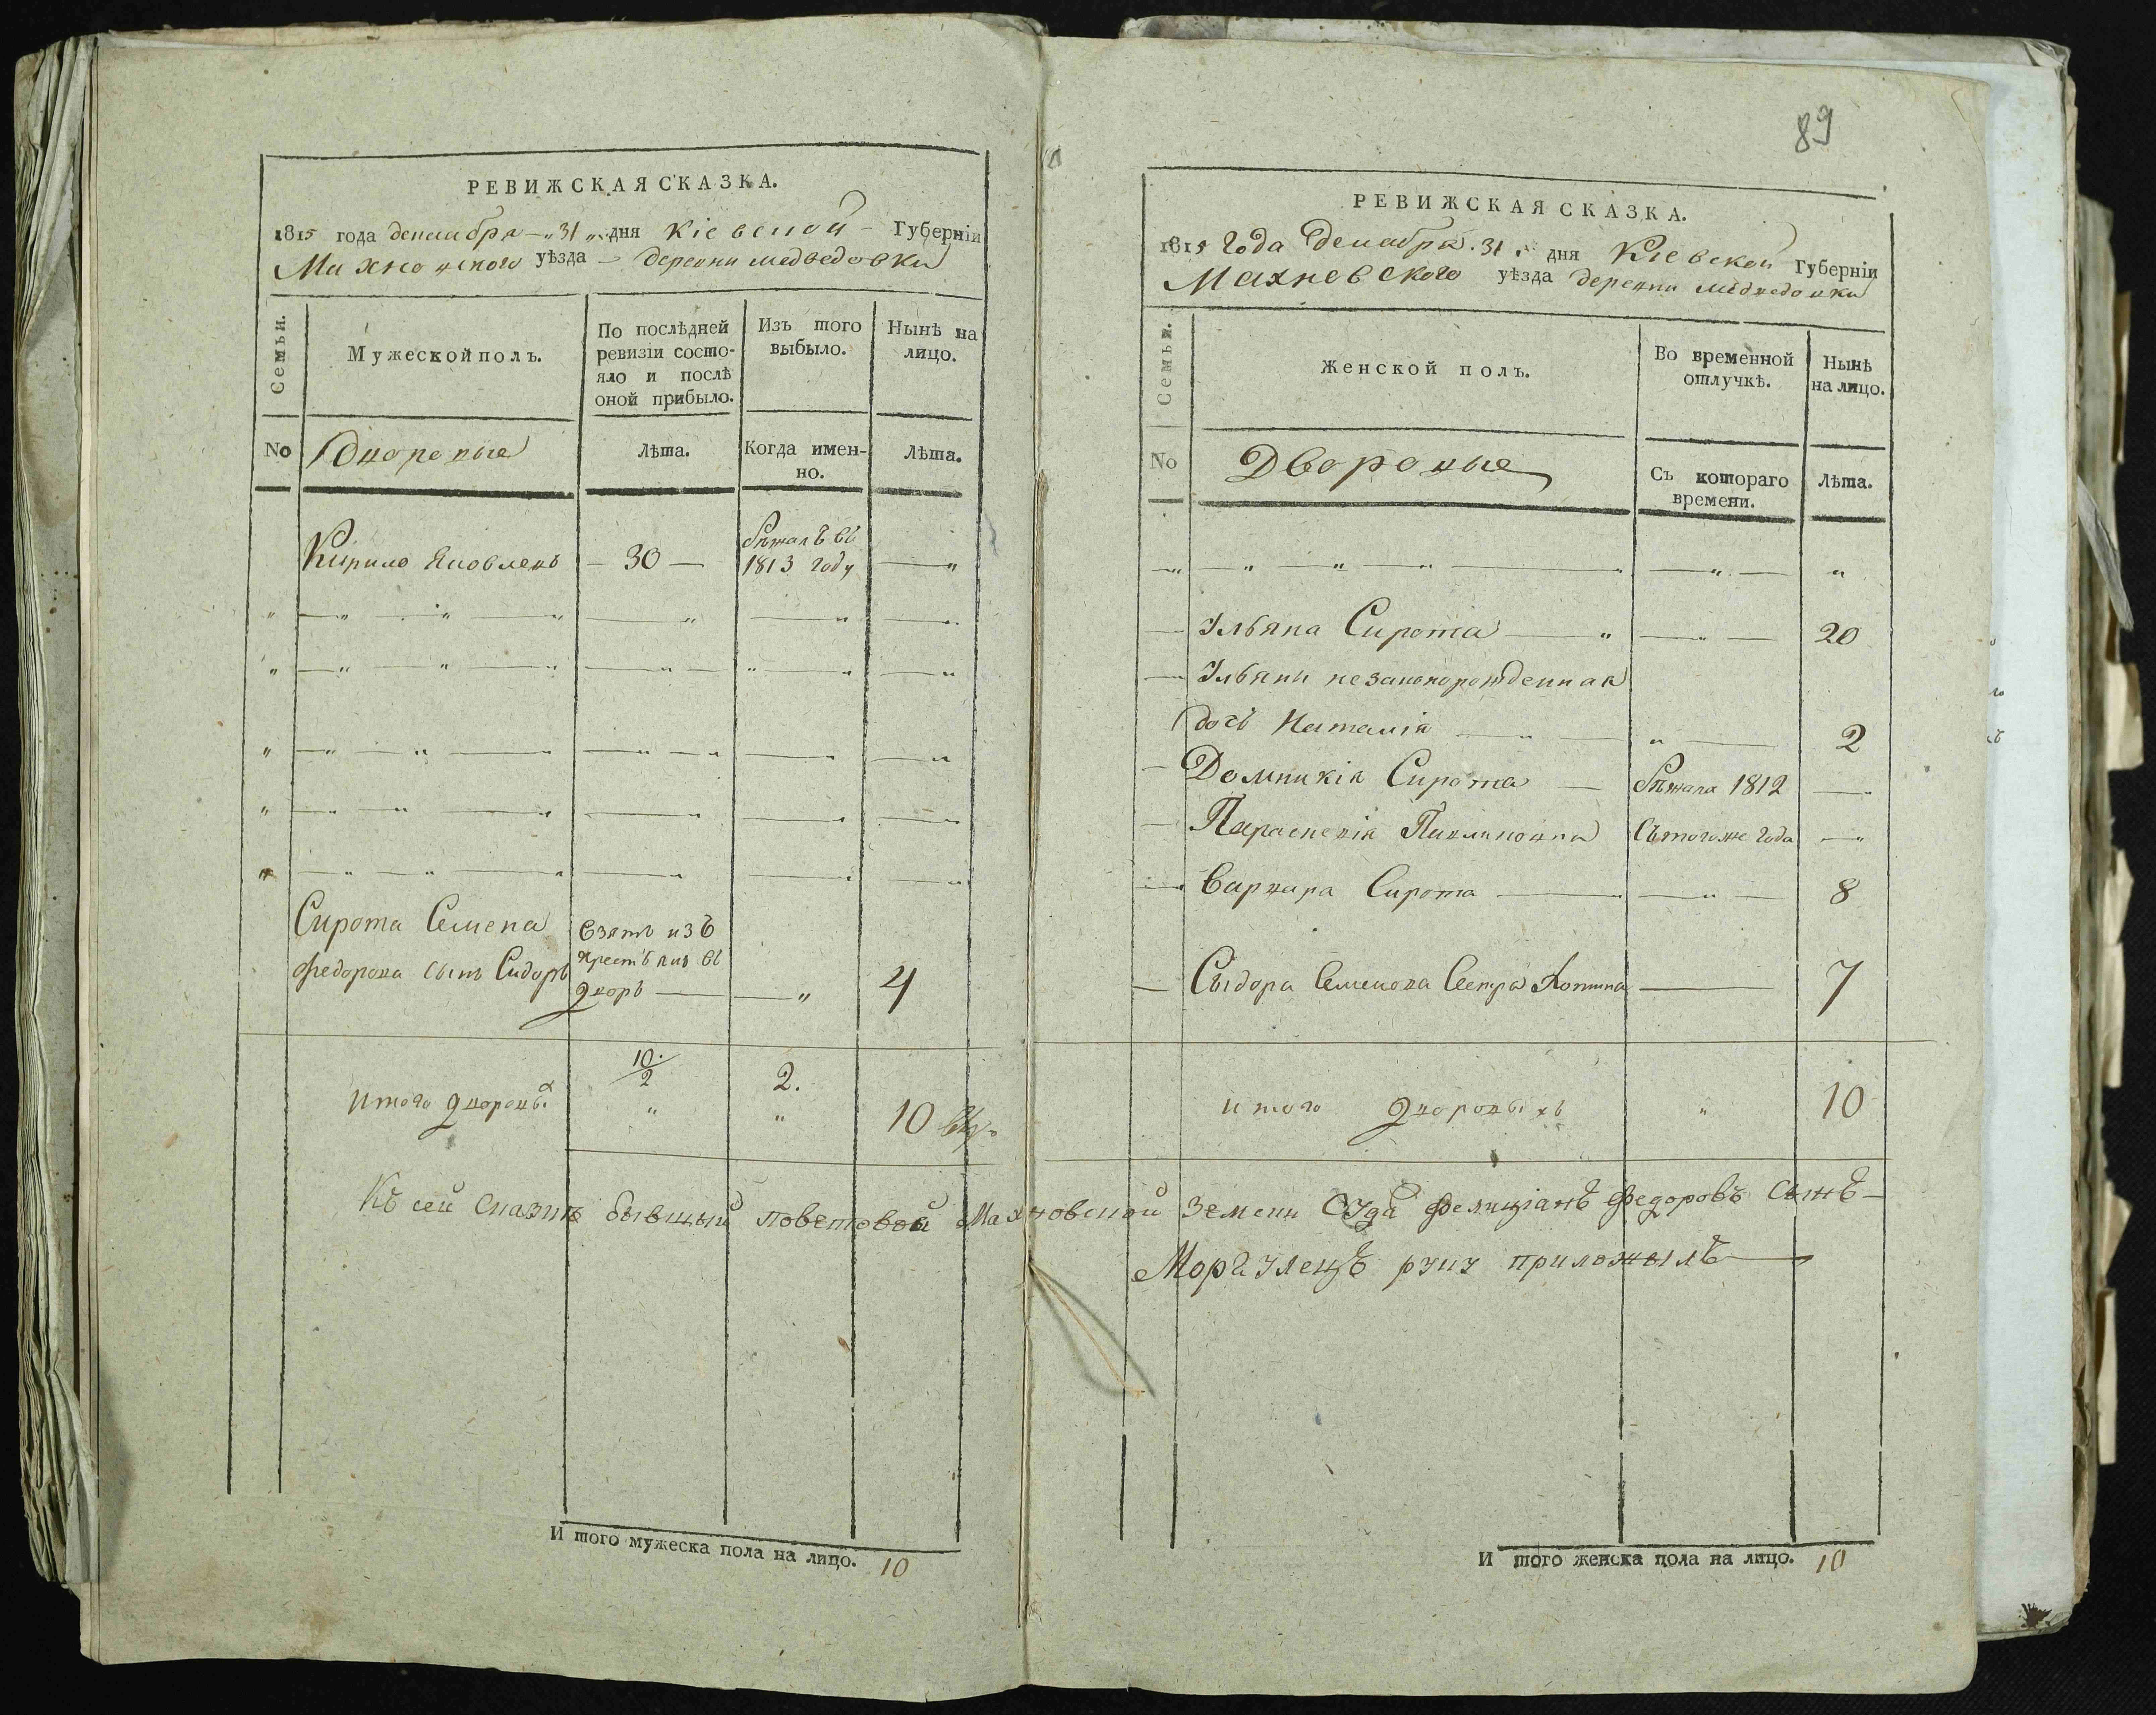 РЕВИЖСКАЯ СКАЗКА.
1815 года декабря 31 дня Кіевской Губерніи
Махновского уѣзда деревни Медведовки
Семьи.
Мужеской полъ.
По послѣдней
ревизіи состо-
яло и послѣ
оной прибыло.
Изъ того
выбыло.
Нынѣ на
лицо.
No
Дворовые
Лѣта.
Когда имен-
но.
Лѣта.
Кирило Яковлевъ — 30 —
бѣжалъ въ
1813 году
Сирота Семена
Федорова сынъ Сидоръ
взятъ изъ
крестьянъ въ
дворъ
4
10.
2
2.
Итого дворовых
10
Къ сей сказки бывший поветовой Махновской земски Суда Фелиціанъ Федоровъ Сынъ
руку приложылъ
И того мужеска пола на лицо. 10
89
РЕВИЖСКАЯ СКАЗКА.
1815 года декабря 31 дня Кіевской Губерніи
Махневского уѣзда деревни Медведовки
Семьи.
Женской полъ.
Во временной
отлучкѣ.
Нынѣ
на лицо.
No
Дворовые
Съ котораго
времени.
Лѣта.
Ульяна Сирота 20
Ульяны незаконорожденная
дочь Наталія 2
Домникія Сирота бѣжала 1812
Параскевія съ того же года
Варвара Сирота 8
Сыдора Семенова Сестра 7
итого дворовыхъ 10
И того женска пола на лицо. 10